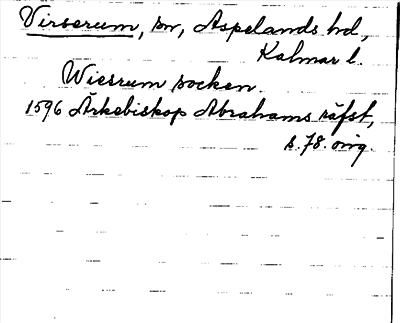 Virserum, sn, Aspelands hd,
Kalmar l.
Wiesrum socken.
1596 Ärkebiskop Abrahams räfst,
s. 78. orig.